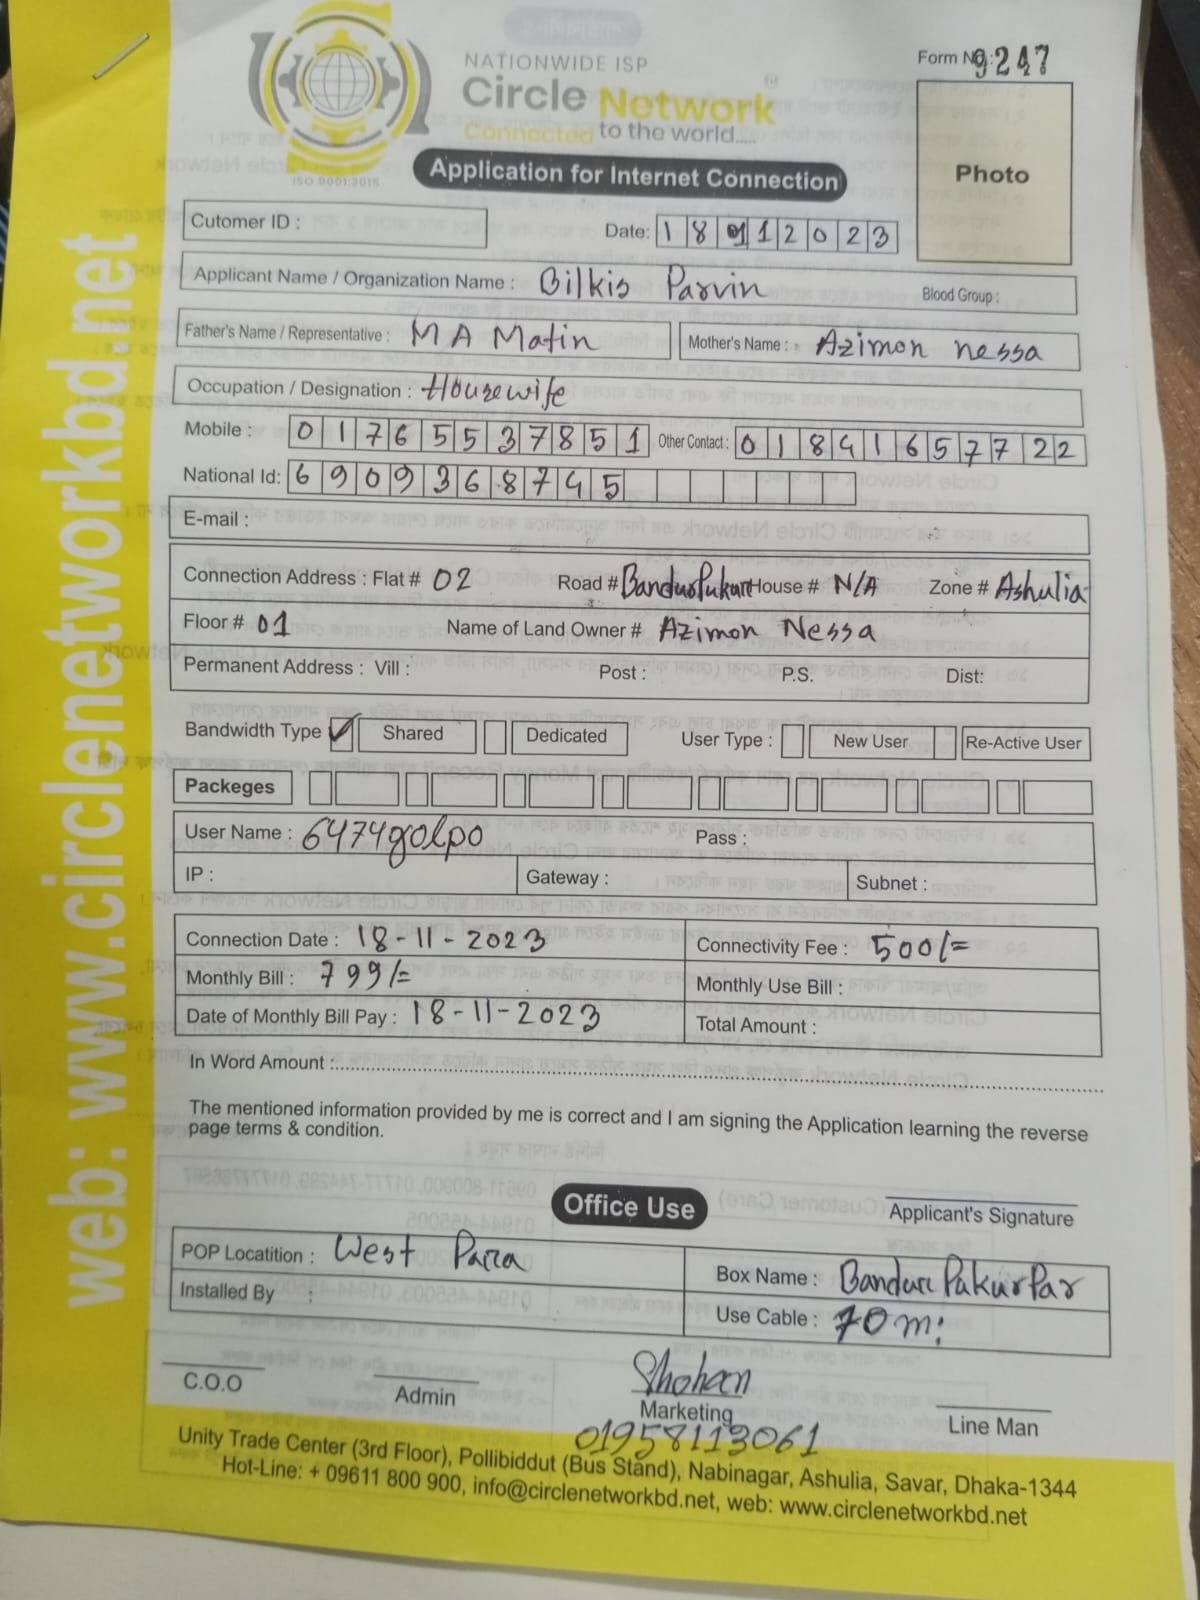 NATIONWIDE ISP
Circle Network
Connected to the world.....
ISO 9001:2015
Form No: 9247
Application for Internet Connection
Photo
Cutomer ID :
Date: 18 11 2023
Applicant Name / Organization Name : Bilkis Parvin Blood Group :
Father's Name / Representative : MA Matin Mother's Name : Azimon nessa
Occupation / Designation : Housewife
Mobile : 01765537851 Other Contact : 01841657722
National Id: 6909368745
E-mail :
Connection Address : Flat # 02 Road # House # N/A Zone # Ashulia
Floor # 01 Name of Land Owner # Azimon Nessa
Permanent Address : Vill : Post : P.S. Dist:
Bandwidth Type Shared Dedicated User Type : New User Re-Active User
Packeges
User Name : 6474golpo Pass :
IP : Gateway : Subnet :
Connection Date : 18-11-2023 Connectivity Fee : 500/=
Monthly Bill : 799/= Monthly Use Bill :
Date of Monthly Bill Pay : 18-11-2023 Total Amount :
In Word Amount :
The mentioned information provided by me is correct and I am signing the Application learning the reverse
page terms & condition.
Office Use
Applicant's Signature
POP Locatition : West Para Box Name : Bandur PakurPar
Installed By : Use Cable : 70m:
C.O.O Admin Shohan Marketing Line Man
01958113061
Unity Trade Center (3rd Floor), Pollibiddut (Bus Stand), Nabinagar, Ashulia, Savar, Dhaka-1344
Hot-Line: + 09611 800 900, info@circlenetworkbd.net, web: www.circlenetworkbd.net
web: www.circlenetworkbd.net